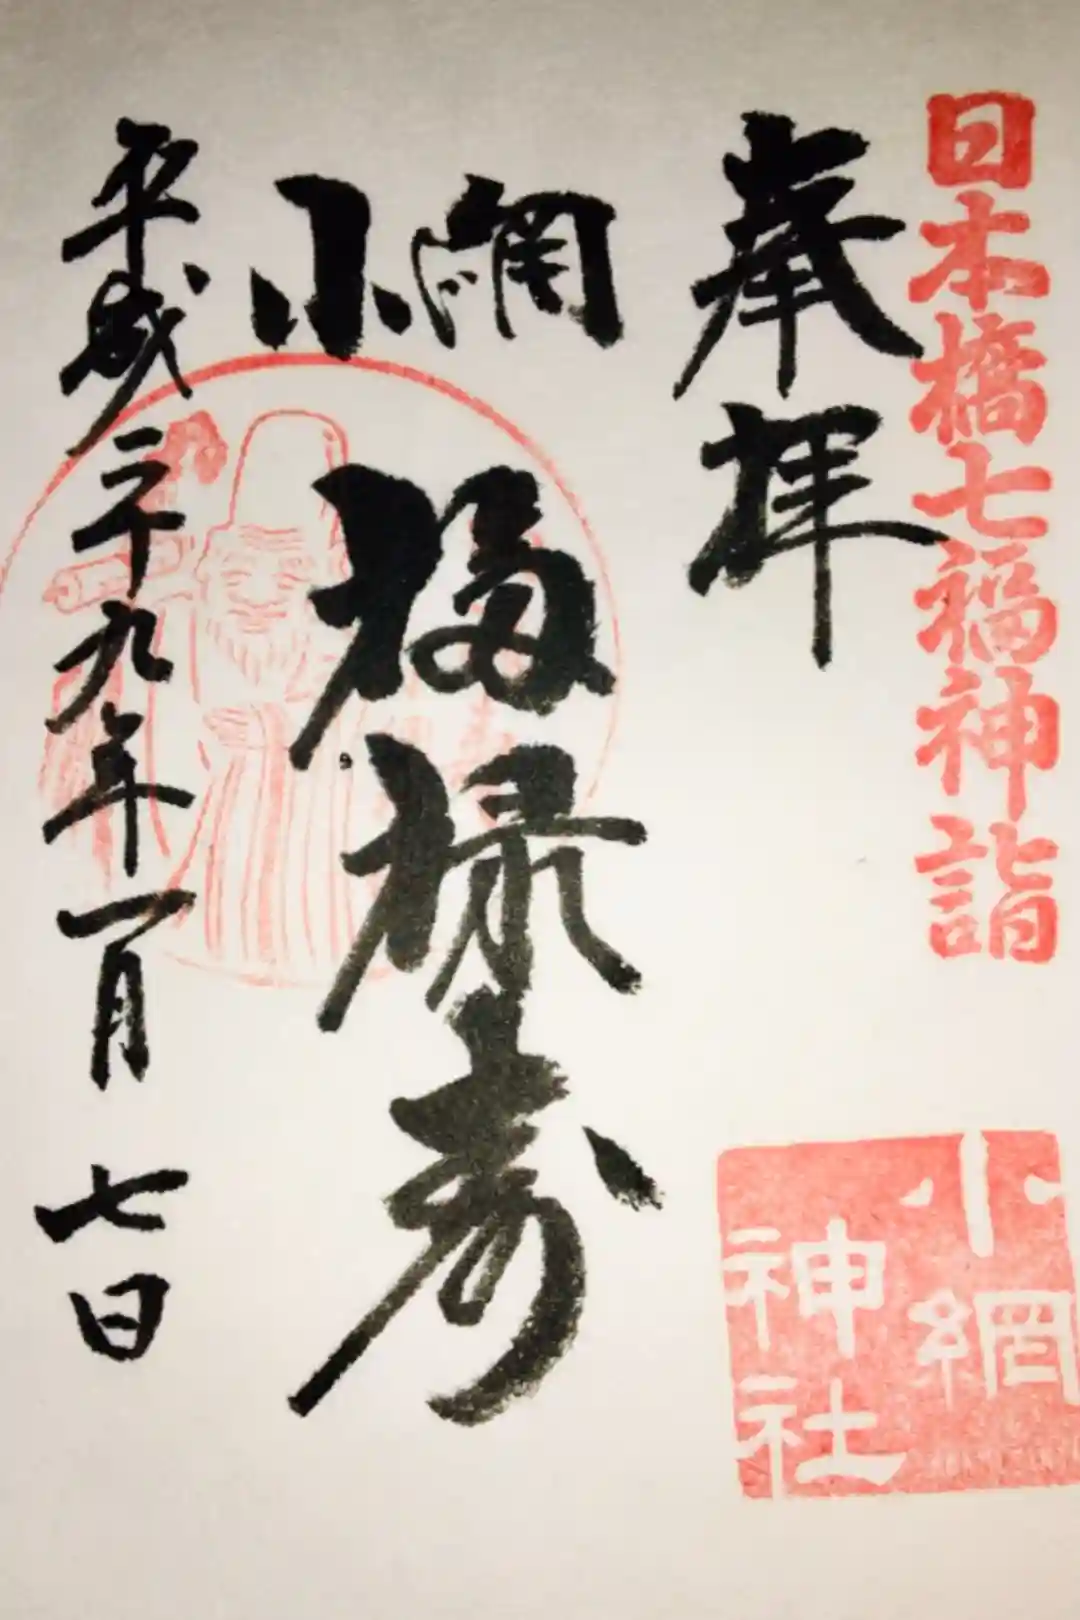 日本橋七福神詣
奉拝
小網
福禄寿
平成二十九年一月七日
小網
神社